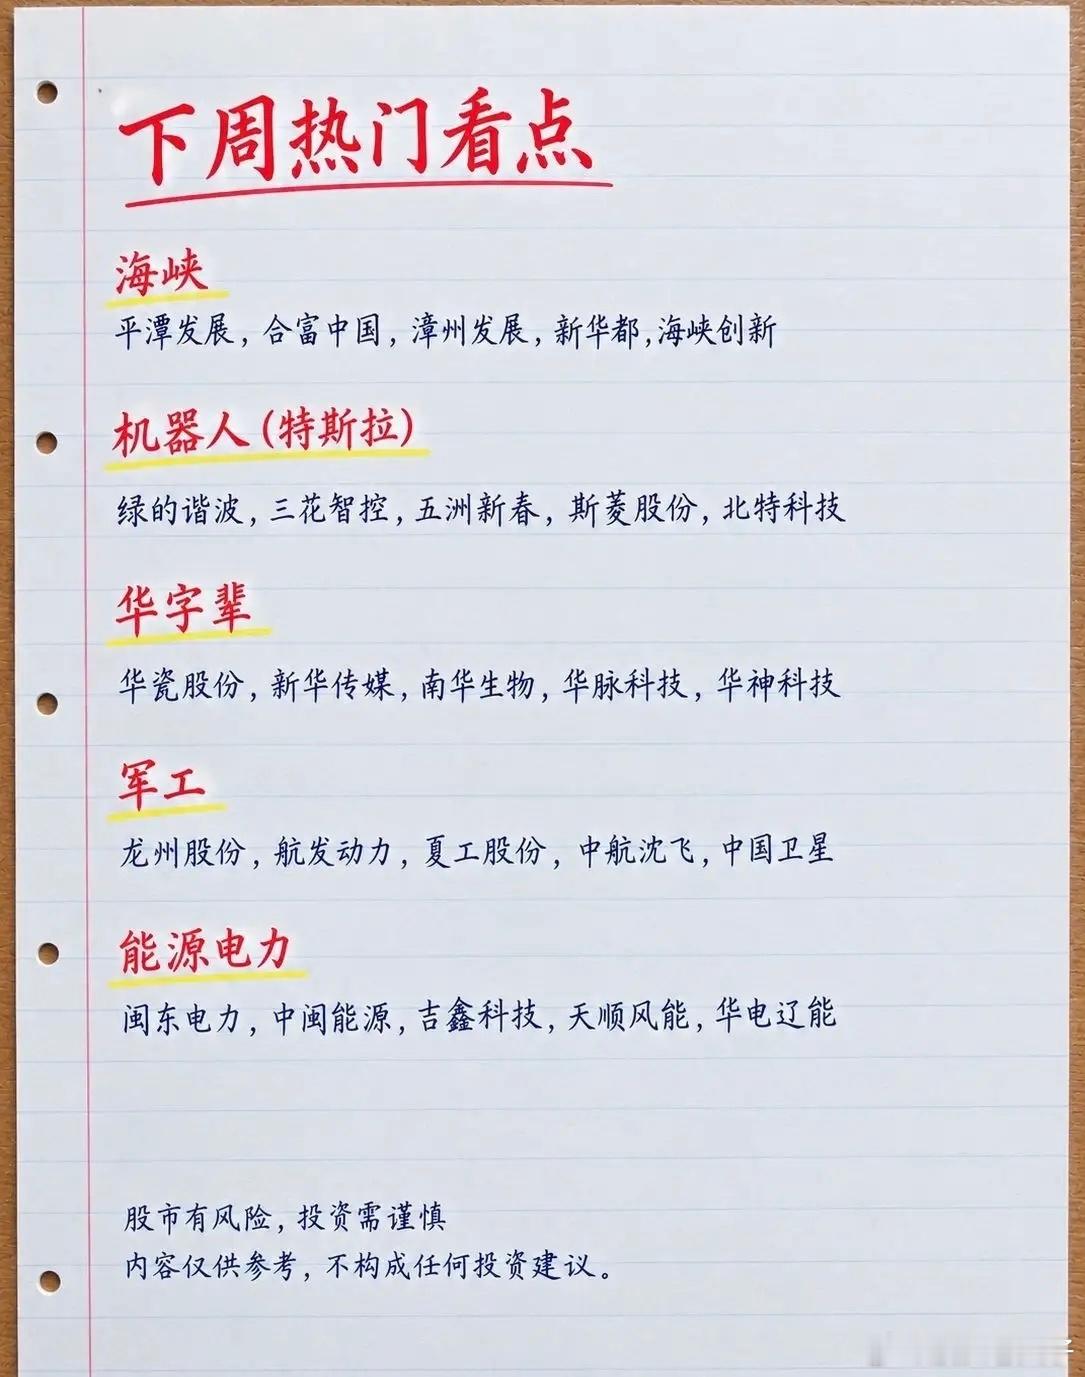 下周热门看点
海峡
平潭发展, 合富中国, 漳州发展, 新华都,海峡创新
机器人(特斯拉)
绿的谐波, 三花智控, 五洲新春, 斯菱股份, 北特科技
华字辈
华瓷股份, 新华传媒, 南华生物, 华脉科技, 华神科技
军工
龙州股份, 航发动力, 夏工股份, 中航沈飞, 中国卫星
能源电力
闽东电力, 中闽能源, 吉鑫科技, 天顺风能, 华电辽能
股市有风险, 投资需谨慎
内容仅供参考, 不构成任何投资建议。